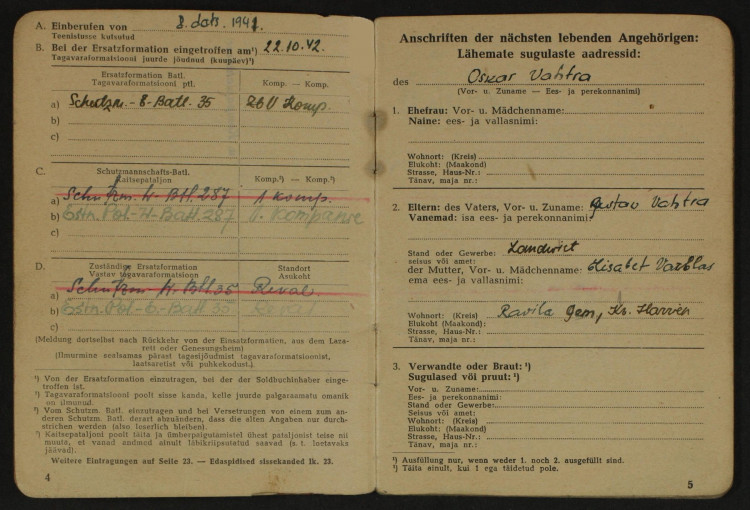 A. Einberufen von 8. dets. 1941.
Teenistusse kutsutud
B. Bei der Ersatzformation eingetroffen am¹) 22.10.42.
Tagavaraformatsiooni juurde jõudnud (kuupäev)¹)
Ersatzformation Batl. Komp. — Komp.
Tagavaraformatsiooni ptl.
a) Schutzm.-E-Batl. 35 Komp.
b)
c)
C. Schutzmannschafts-Batl. Komp.³) — Komp.³)
Kaitsepataljon
a) Batl. 287 1 Komp.
b) Estn. Pol-H-Batl. 287 1. Kompanie
c)
D. Zuständige Ersatzformation Standort
Vastav tagavaraformatsioon Asukoht
a) Batl. 35 Reval.
b) Estn. Pol-E-Batl 35 Reval
c)
(Meldung dortselbst nach Rückkehr von der Einsatzformation, aus dem Laza-
rett oder Genesungsheim)
(Ilmumine sealsamas pärast tagasijõudmist tagavaraformatsioonist,
laatsaretist või puhkekodust.)
¹) Von der Ersatzformation einzutragen, bei der der Soldbuchinhaber einge-
troffen ist.
²) Tagavaraformatsiooni poolt sisse kanda, kelle juurde palgaraamatu omanik
on ilmunud.
³) Vom Schutzm. Batl. einzutragen und bei Versetzungen von einem zum an-
deren Schutzm. Batl. derart abzuändern, dass die alten Angaben nur durch-
strichen werden (also leserlich bleiben).
²) Kaitsepataljoni poolt täita ja ümberpaigutamistel ühest pataljonist teise nii
muuta, et vanad andmed ainult läbikriipsutatud saavad (s. t. loetavaks
jäävad).
Weitere Eintragungen auf Seite 23. — Edaspidised sissekanded lk. 23.
4
Anschriften der nächsten lebenden Angehörigen:
Lähemate sugulaste aadressid:
des Oskar Vahtra
(Vor- u. Zuname — Ees- ja perekonnanimi)
1. Ehefrau: Vor- u. Mädchenname:
Naine: ees- ja vallasnimi:
Wohnort: (Kreis)
Elukoht: (Maakond)
Strasse, Haus-Nr.:
Tänav, maja nr.:
2. Eltern: des Vaters, Vor- u. Zuname: Gustav Vahtra
Vanemad: isa ees- ja perekonnanimi:
Stand oder Gewerbe: Landwirt
seisus või amet:
der Mutter, Vor- u. Mädchenname: Elisabet
ema ees- ja vallasnimi:
Wohnort: (Kreis) Ravila Gem, Kr. Harrien
Elukoht (Maakond):
Strasse, Haus-Nr.:
Tänav, maja nr.:
3. Verwandte oder Braut: ¹)
Sugulased või pruut: ²)
Vor- u. Zuname:
Ees- ja perekonnanimi:
Stand oder Gewerbe:
Seisus või amet:
Wohnort: (Kreis)
Elukoht: (Maakond)
Strasse, Haus-Nr.:
Tänav, maja nr.:
¹) Ausfüllung nur, wenn weder 1. noch 2. ausgefüllt sind.
²) Täita ainult, kui 1 ega täidetud pole.
5